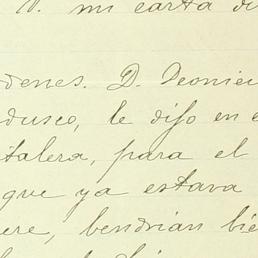 V. mi carta di
rdenes. D. Deonici
duseo, le difo en e
talera, para el
que ya estava
ere, bendrian bie